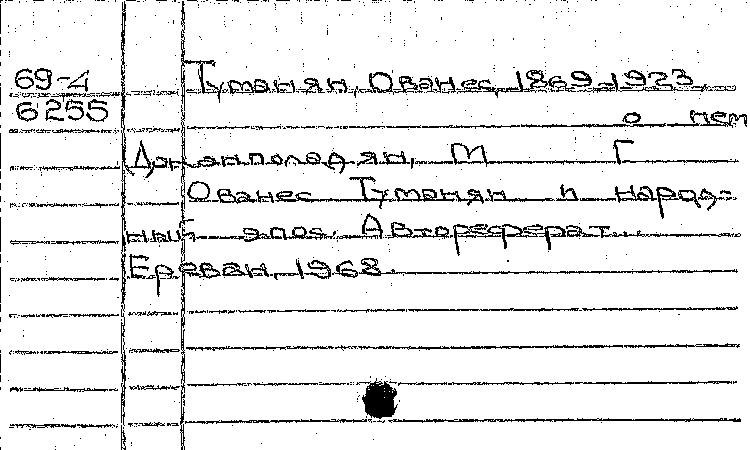 69-4
6255
Туманян, Ованес, 1869-1923,
о нем
Джанполадян, М Г
Ованес Туманян и народ-
ный эпос. Автореферат...
Ереван, 1968.